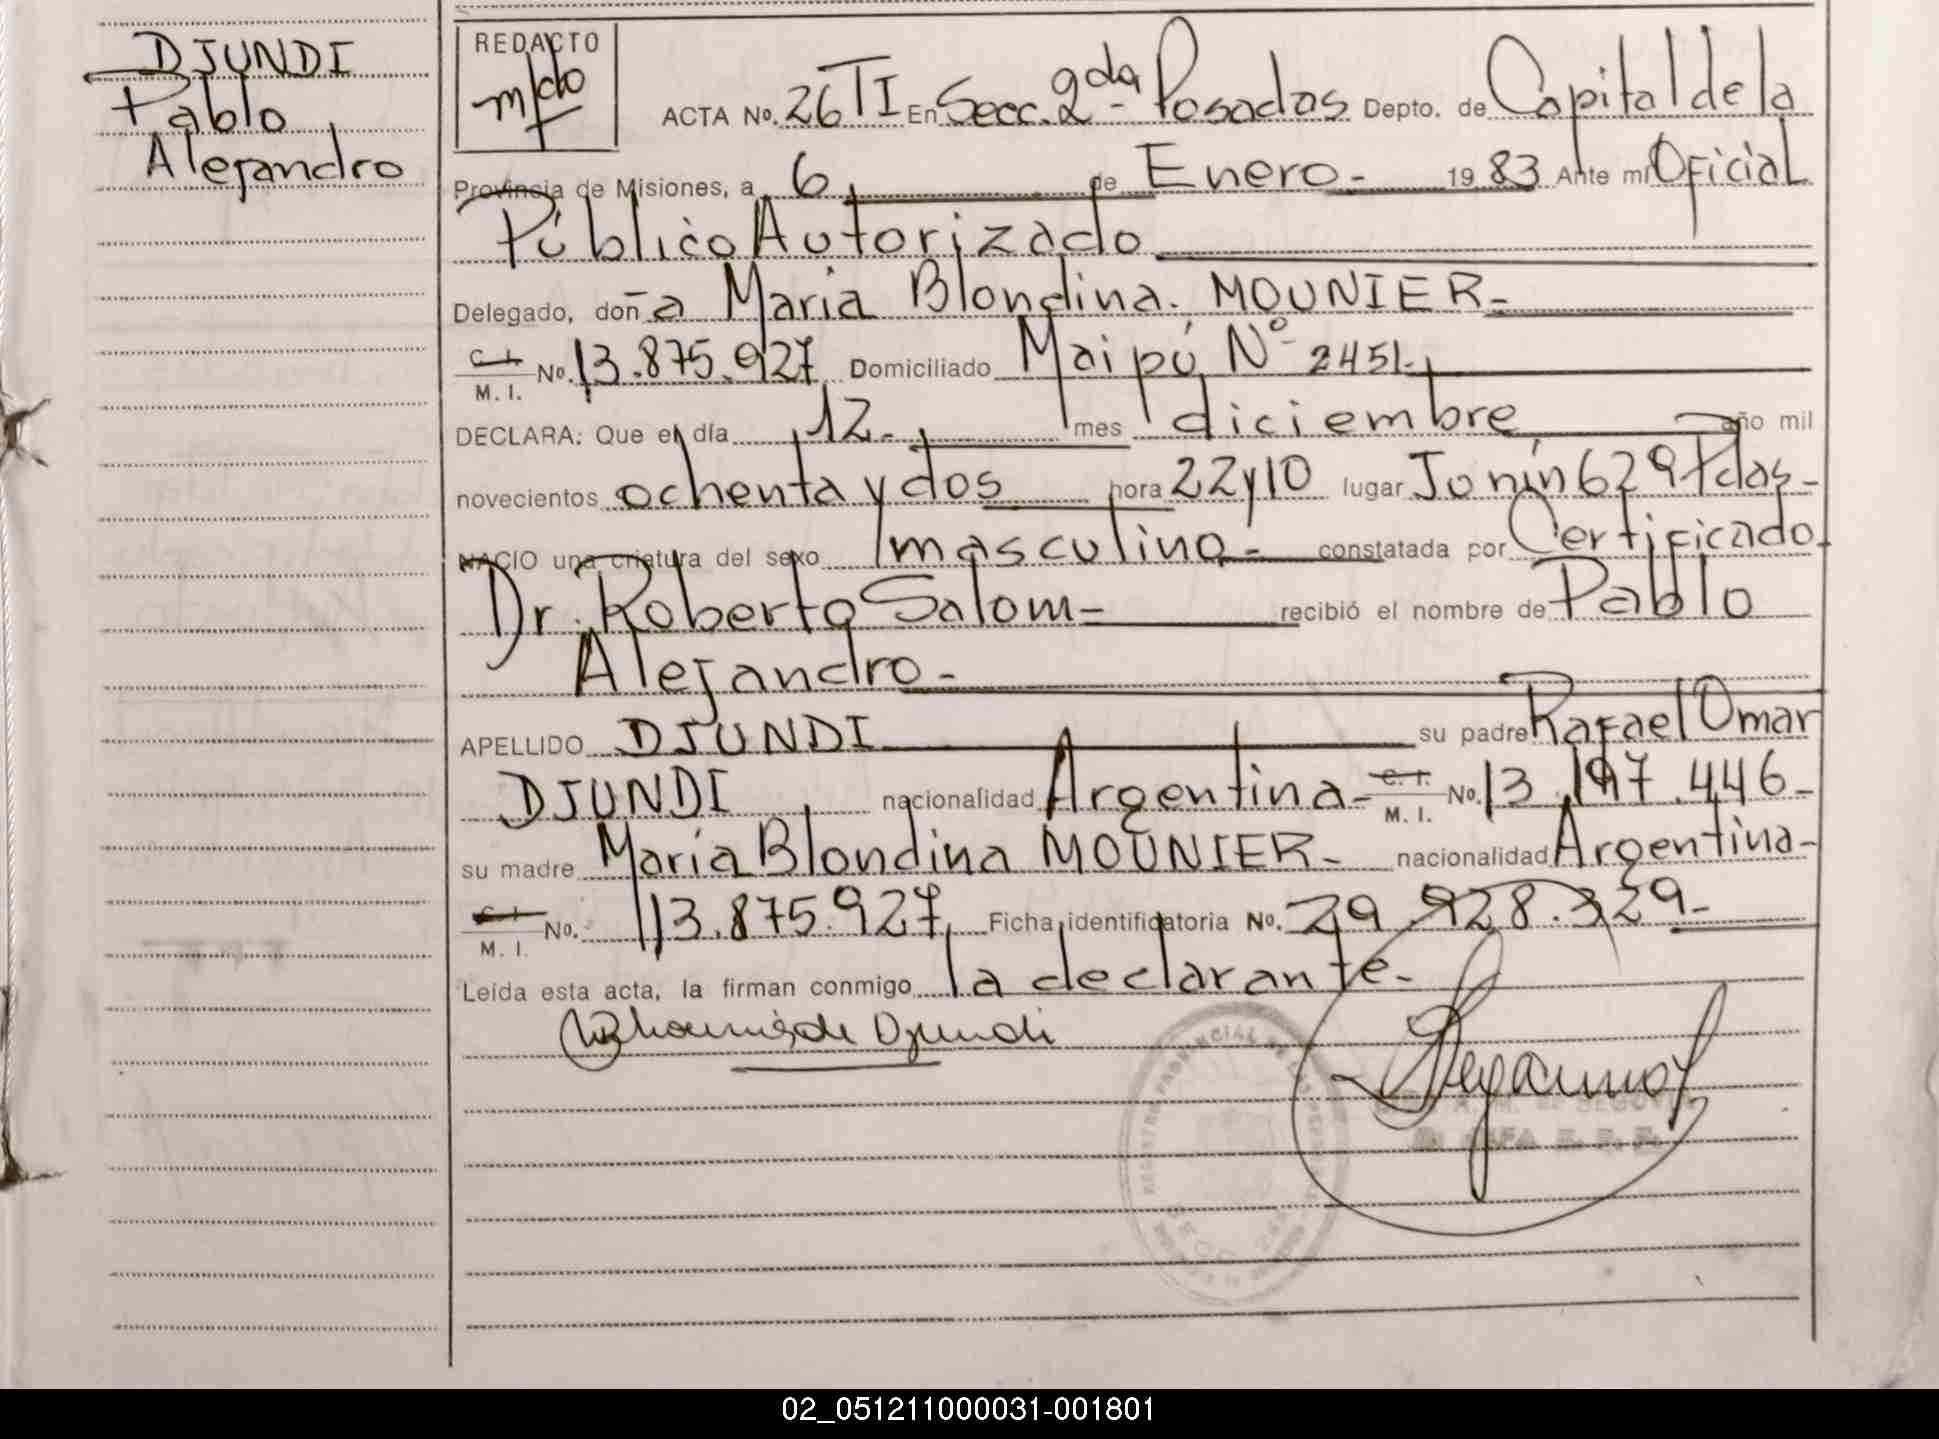 DJUNDI
Pablo
Alejandro
REDACTO
ACTA No. 26 TI En Secc. 2da - Posadas Depto. de Capital de la
Provincia de Misiones, a 6 de Enero - 1983 Ante mi Oficial
Público Autorizado
Delegado, doña Maria Blondina MOUNIER -
C. I.
M. I. No. 13.875.927 Domiciliado Maipú Nº 2451.
DECLARA: Que el día 12 - mes diciembre año mil
novecientos ochenta y dos hora 22 y 10 lugar Junín 629 Pdas -
NACIO una criatura del sexo masculino - constatada por Certificado
Dr. Roberto Salom - recibió el nombre de Pablo
Alejandro -
APELLIDO DJUNDI su padre Rafael Omar
DJUNDI nacionalidad Argentina - C. I.
M. I. No. 13.197.446 -
su madre María Blondina MOUNIER - nacionalidad Argentina -
C. I.
M. I. No. 13.875.927 Ficha identificatoria No. 29.928.329 -
Leída esta acta, la firman conmigo la declarante -
de Djundi
02_051211000031-001801